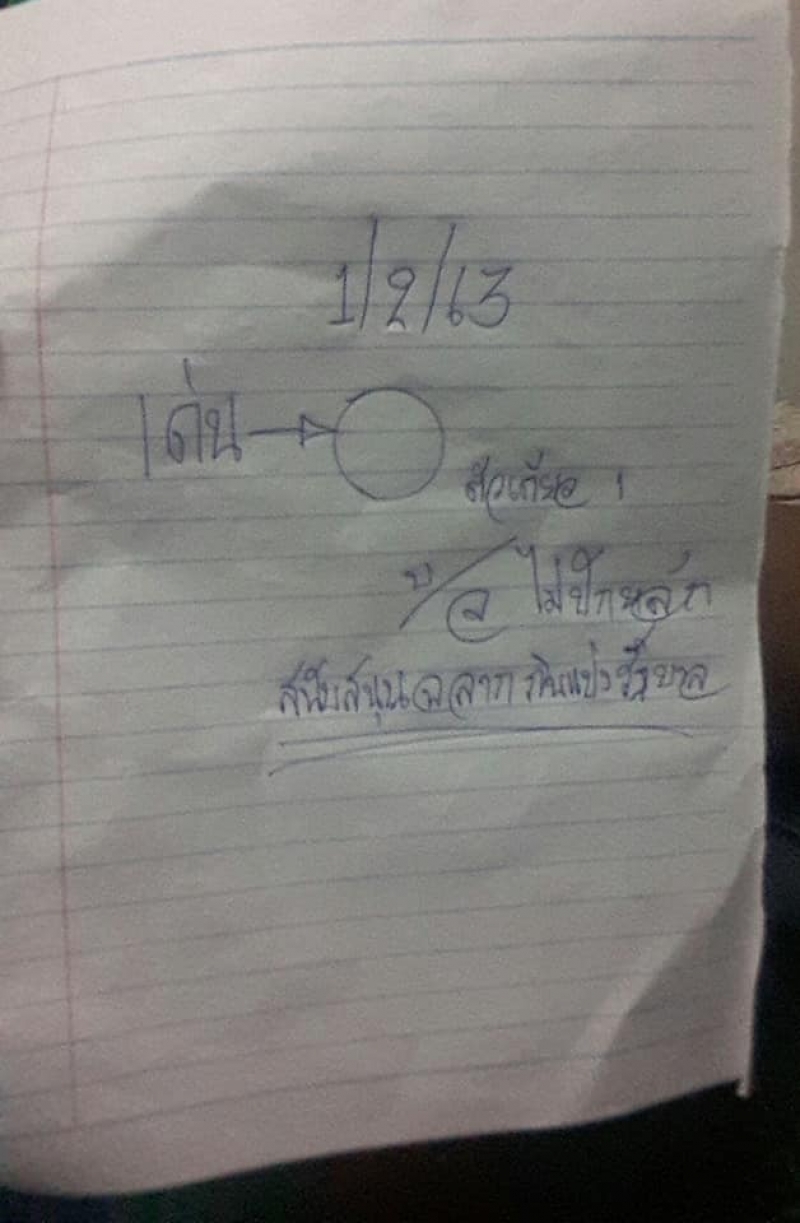 1/2/63
เด่น
ตัวเดียว !
บ/ล ไม่ปักหลัก
สนับสนุนฉลากกินแบ่งรัฐบาล